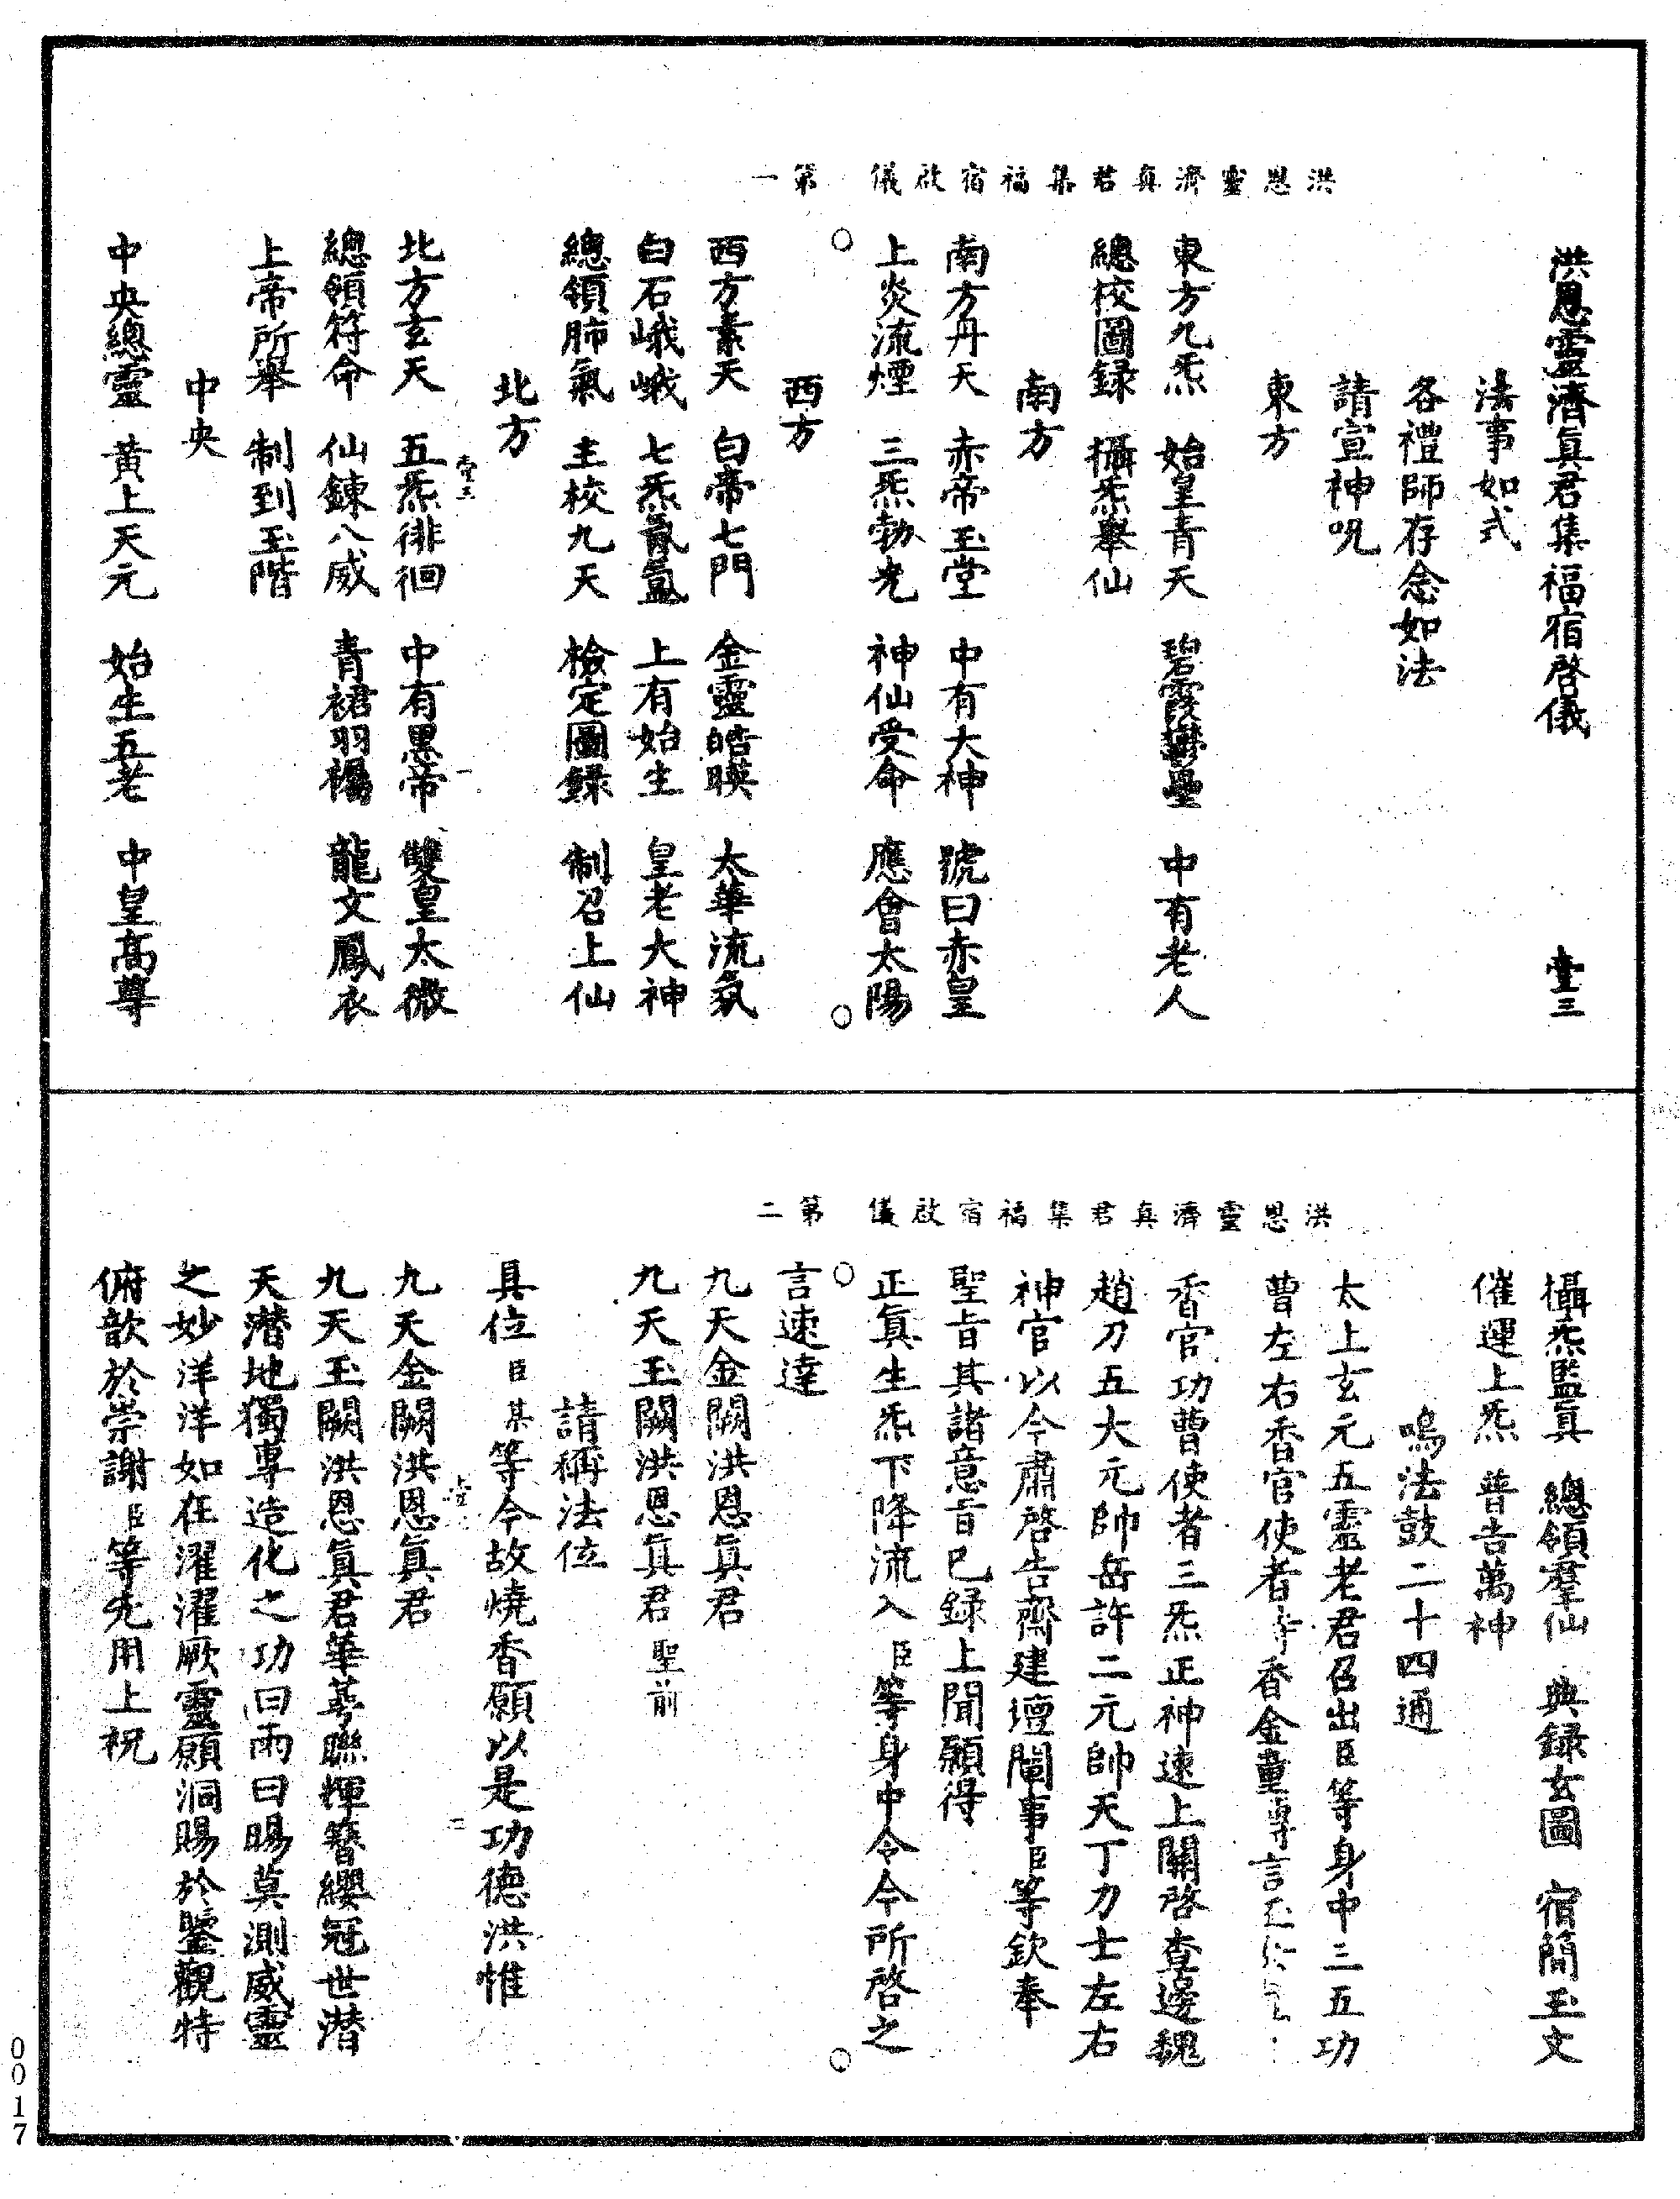 洪恩靈濟眞君集福宿啓儀 壹三
法事如式
各禮師存念如法
請宣神呪
東方
東方九炁 始皇青天 碧霞鬱壘 中有老人
總校圖録 攝炁舉仙
南方
南方丹天 赤帝玉堂 中有大神 號曰赤皇
上炎流煙 三炁勃光 神仙受命 應會太陽
西方
西方素天 白帝七門 金靈皓暎 太華流氛
白石峨峨 七炁氤氳 上有始生 皇老大神
總領肺氣 主校九天 檢定圖録 制召上仙
北方
北方玄天 五炁徘徊 中有黑帝 雙皇太微
總領符命 仙鍊八威 青裙羽褐 龍文鳳衣
上帝所舉 制到玉階
中央
中央總靈 黃上天元 始生五老 中皇高尊
洪恩靈濟真君集福宿啟儀 第一
壹三
一
攝炁監眞 總領羣仙 典録玄圖 宿簡玉文
催運上炁 普告萬神
鳴法鼓二十四通
太上玄元五靈老君召出臣等身中三五功
曹左右香官使者 香金童專言
香官功曹使者三炁正神速上關啓查邊魏
趙刀五大元帥岳許二元帥天丁力士左右
神官以今肅啓告齋建壇闓事臣等欽奉
聖旨其諸意旨已録上聞願得
正眞生炁下降流入臣等身中令今所啓之
言速達
九天金闕洪恩眞君
九天玉闕洪恩眞君聖前
請稱法位
具位臣某等今故燒香願以是功德洪惟
九天金闕洪恩眞君
九天玉闕洪恩眞君華萼聯輝簪纓冠世潛
天潛地獨專造化之功曰雨曰暘莫測威靈
之妙洋洋如在濯濯厥靈願洞賜於鑒觀特
俯歆於崇謝臣等先用上祝
洪恩靈濟真君集福宿啟儀 第二
壹
二
0017